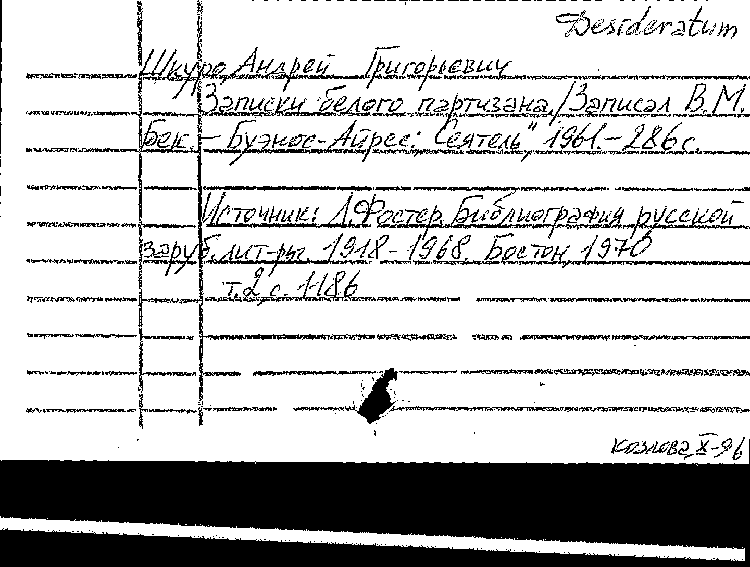 Desideratum
Шкуро Андрей Григорьевич
Записки белого партизана./Записал В.М.
Бек. – Буэнос-Айрес: „Сеятель", 1961. – 286с.
Источник: Л.Фостер. Библиография русской
заруб. лит-ры. 1918 – 1968. Бостон, 1970
т.2, с. 1186
Козлова, X-96